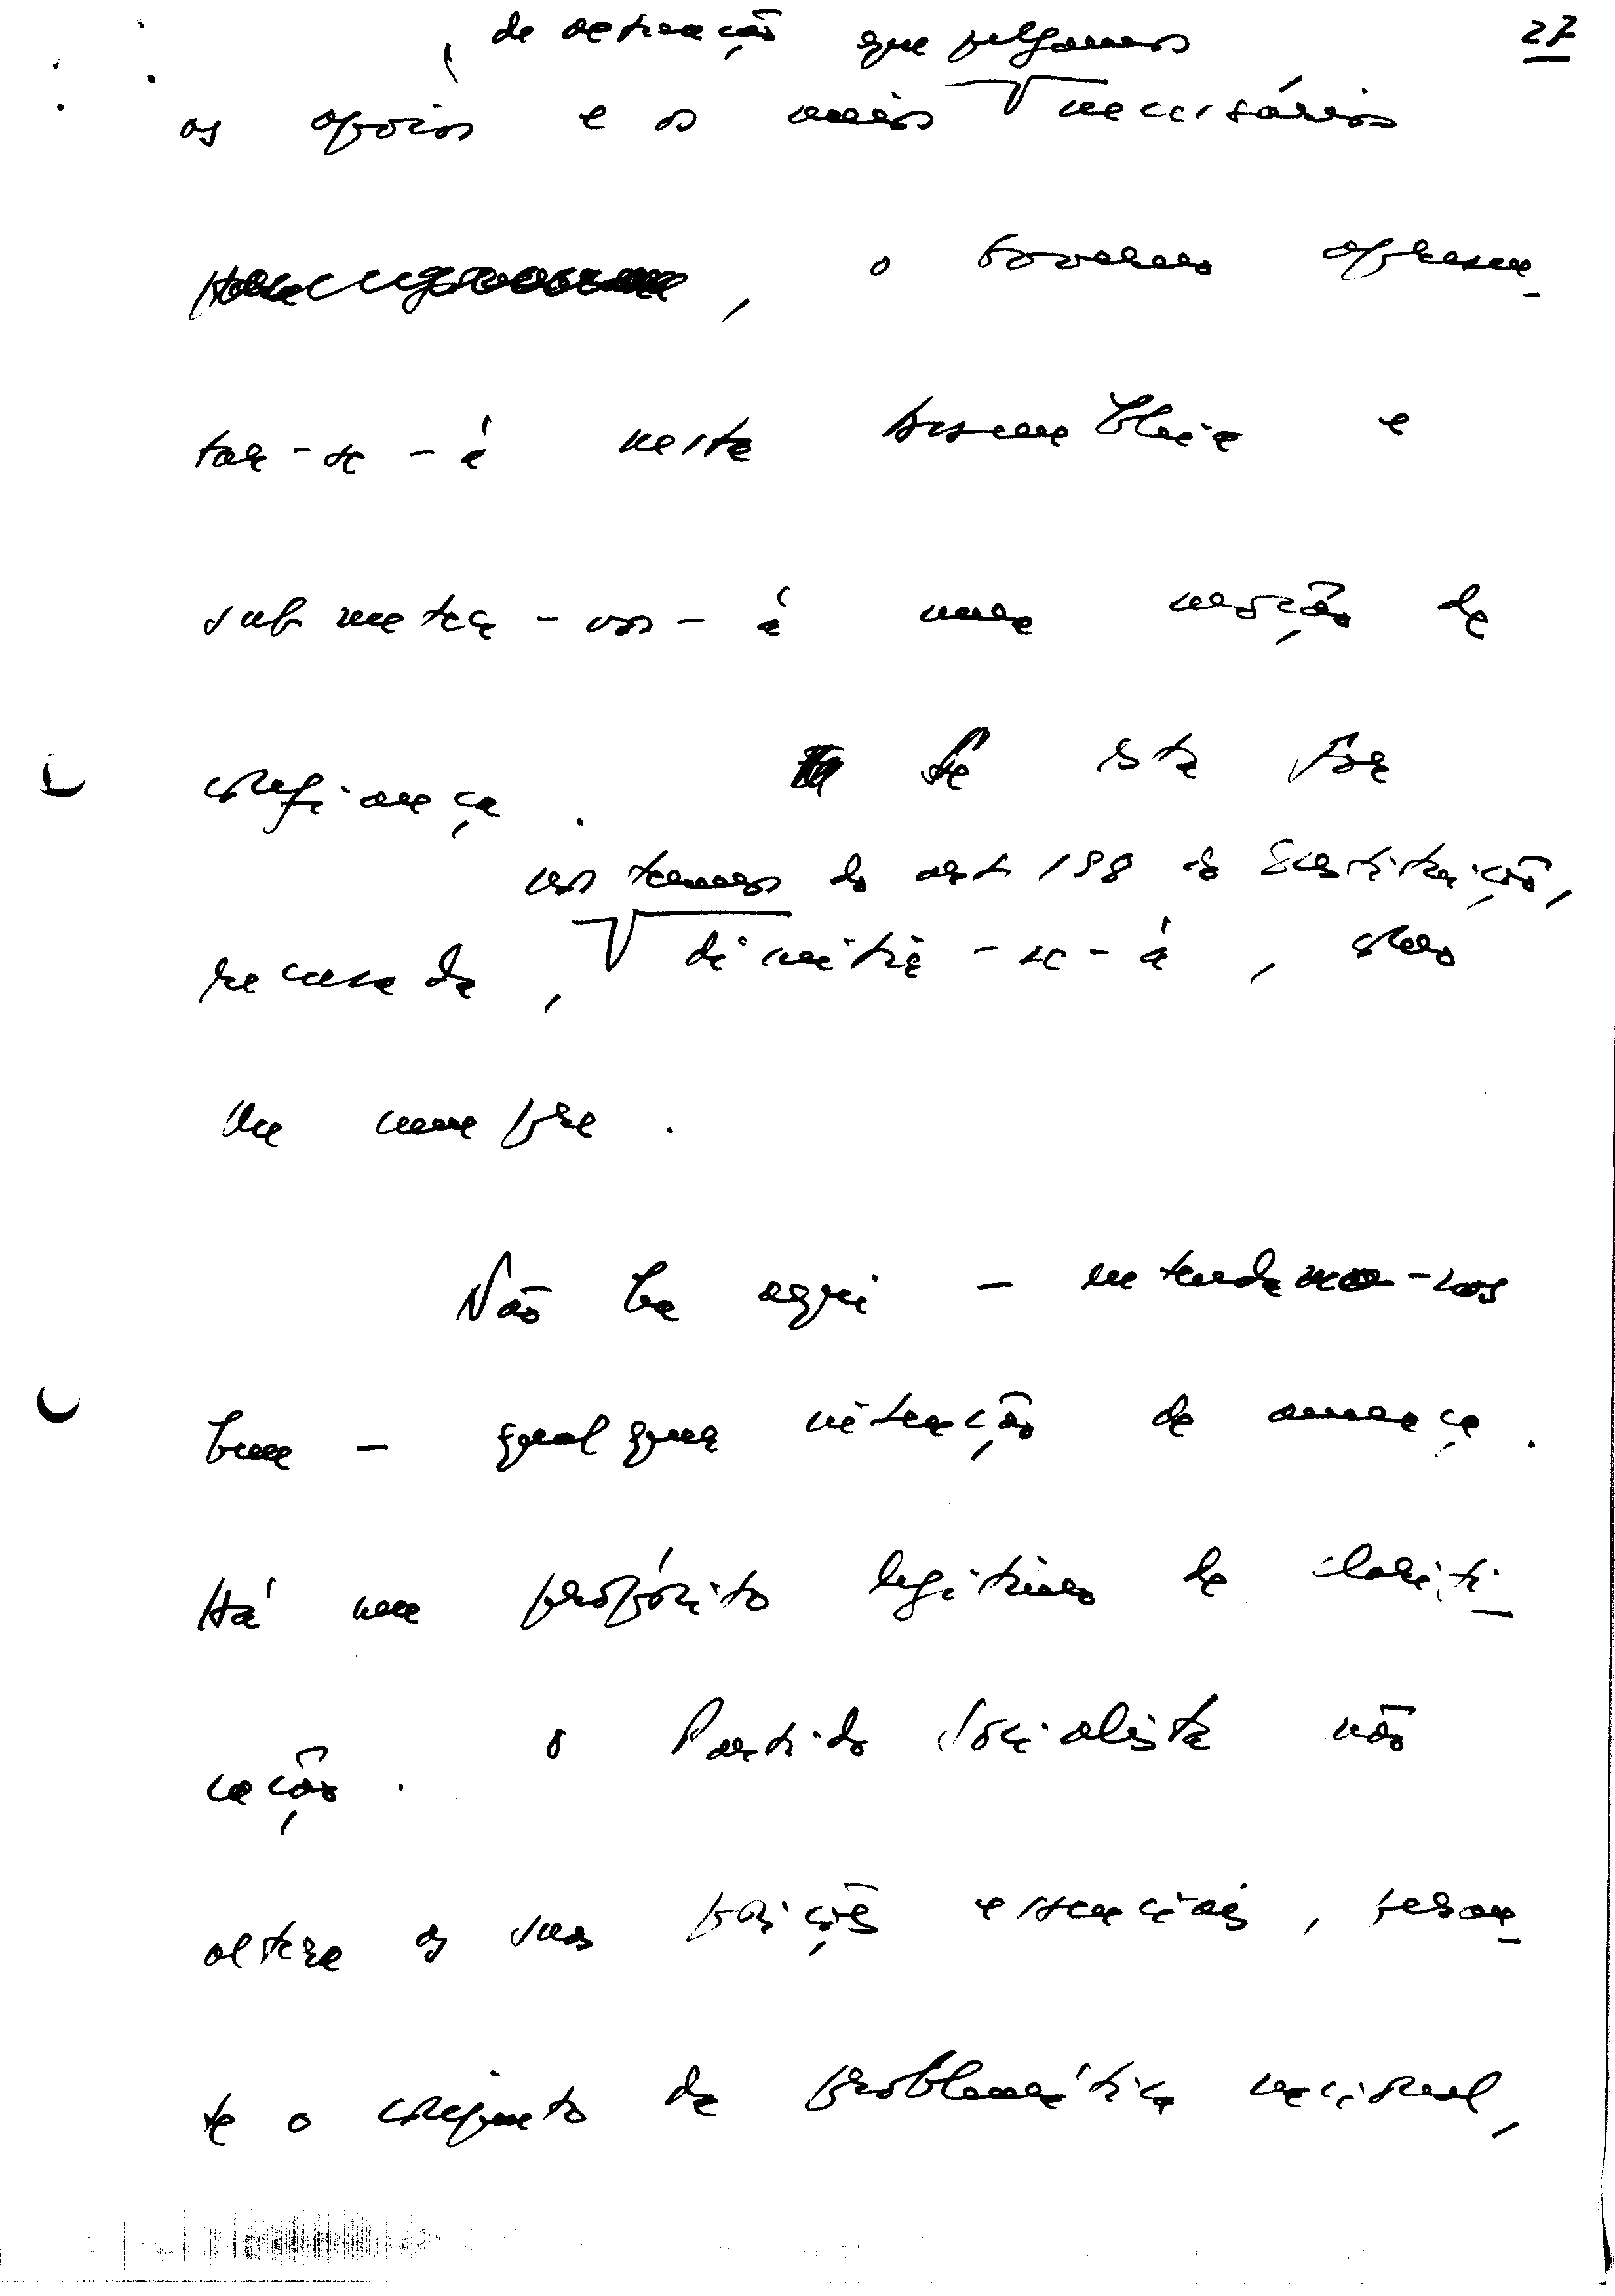 27
de actuação que julgamos
os apoios e os meios necessários
, o Governo apresen-
tar-se-á nesta Assembleia e
submeter-vos-á uma moção de
confiança. Se esta for
nos termos do art 198 da Constituição,
recusada, dimitir-se-á, como
lhe cumpre.
Não há aqui - entendamo-nos
bem - qualquer intenção de ameaça.
Há um propósito legítimo de clarifi-
cação. O Partido Socialista não
altera as suas posições essenciais, peran-
te o conjunto da problemática nacional,